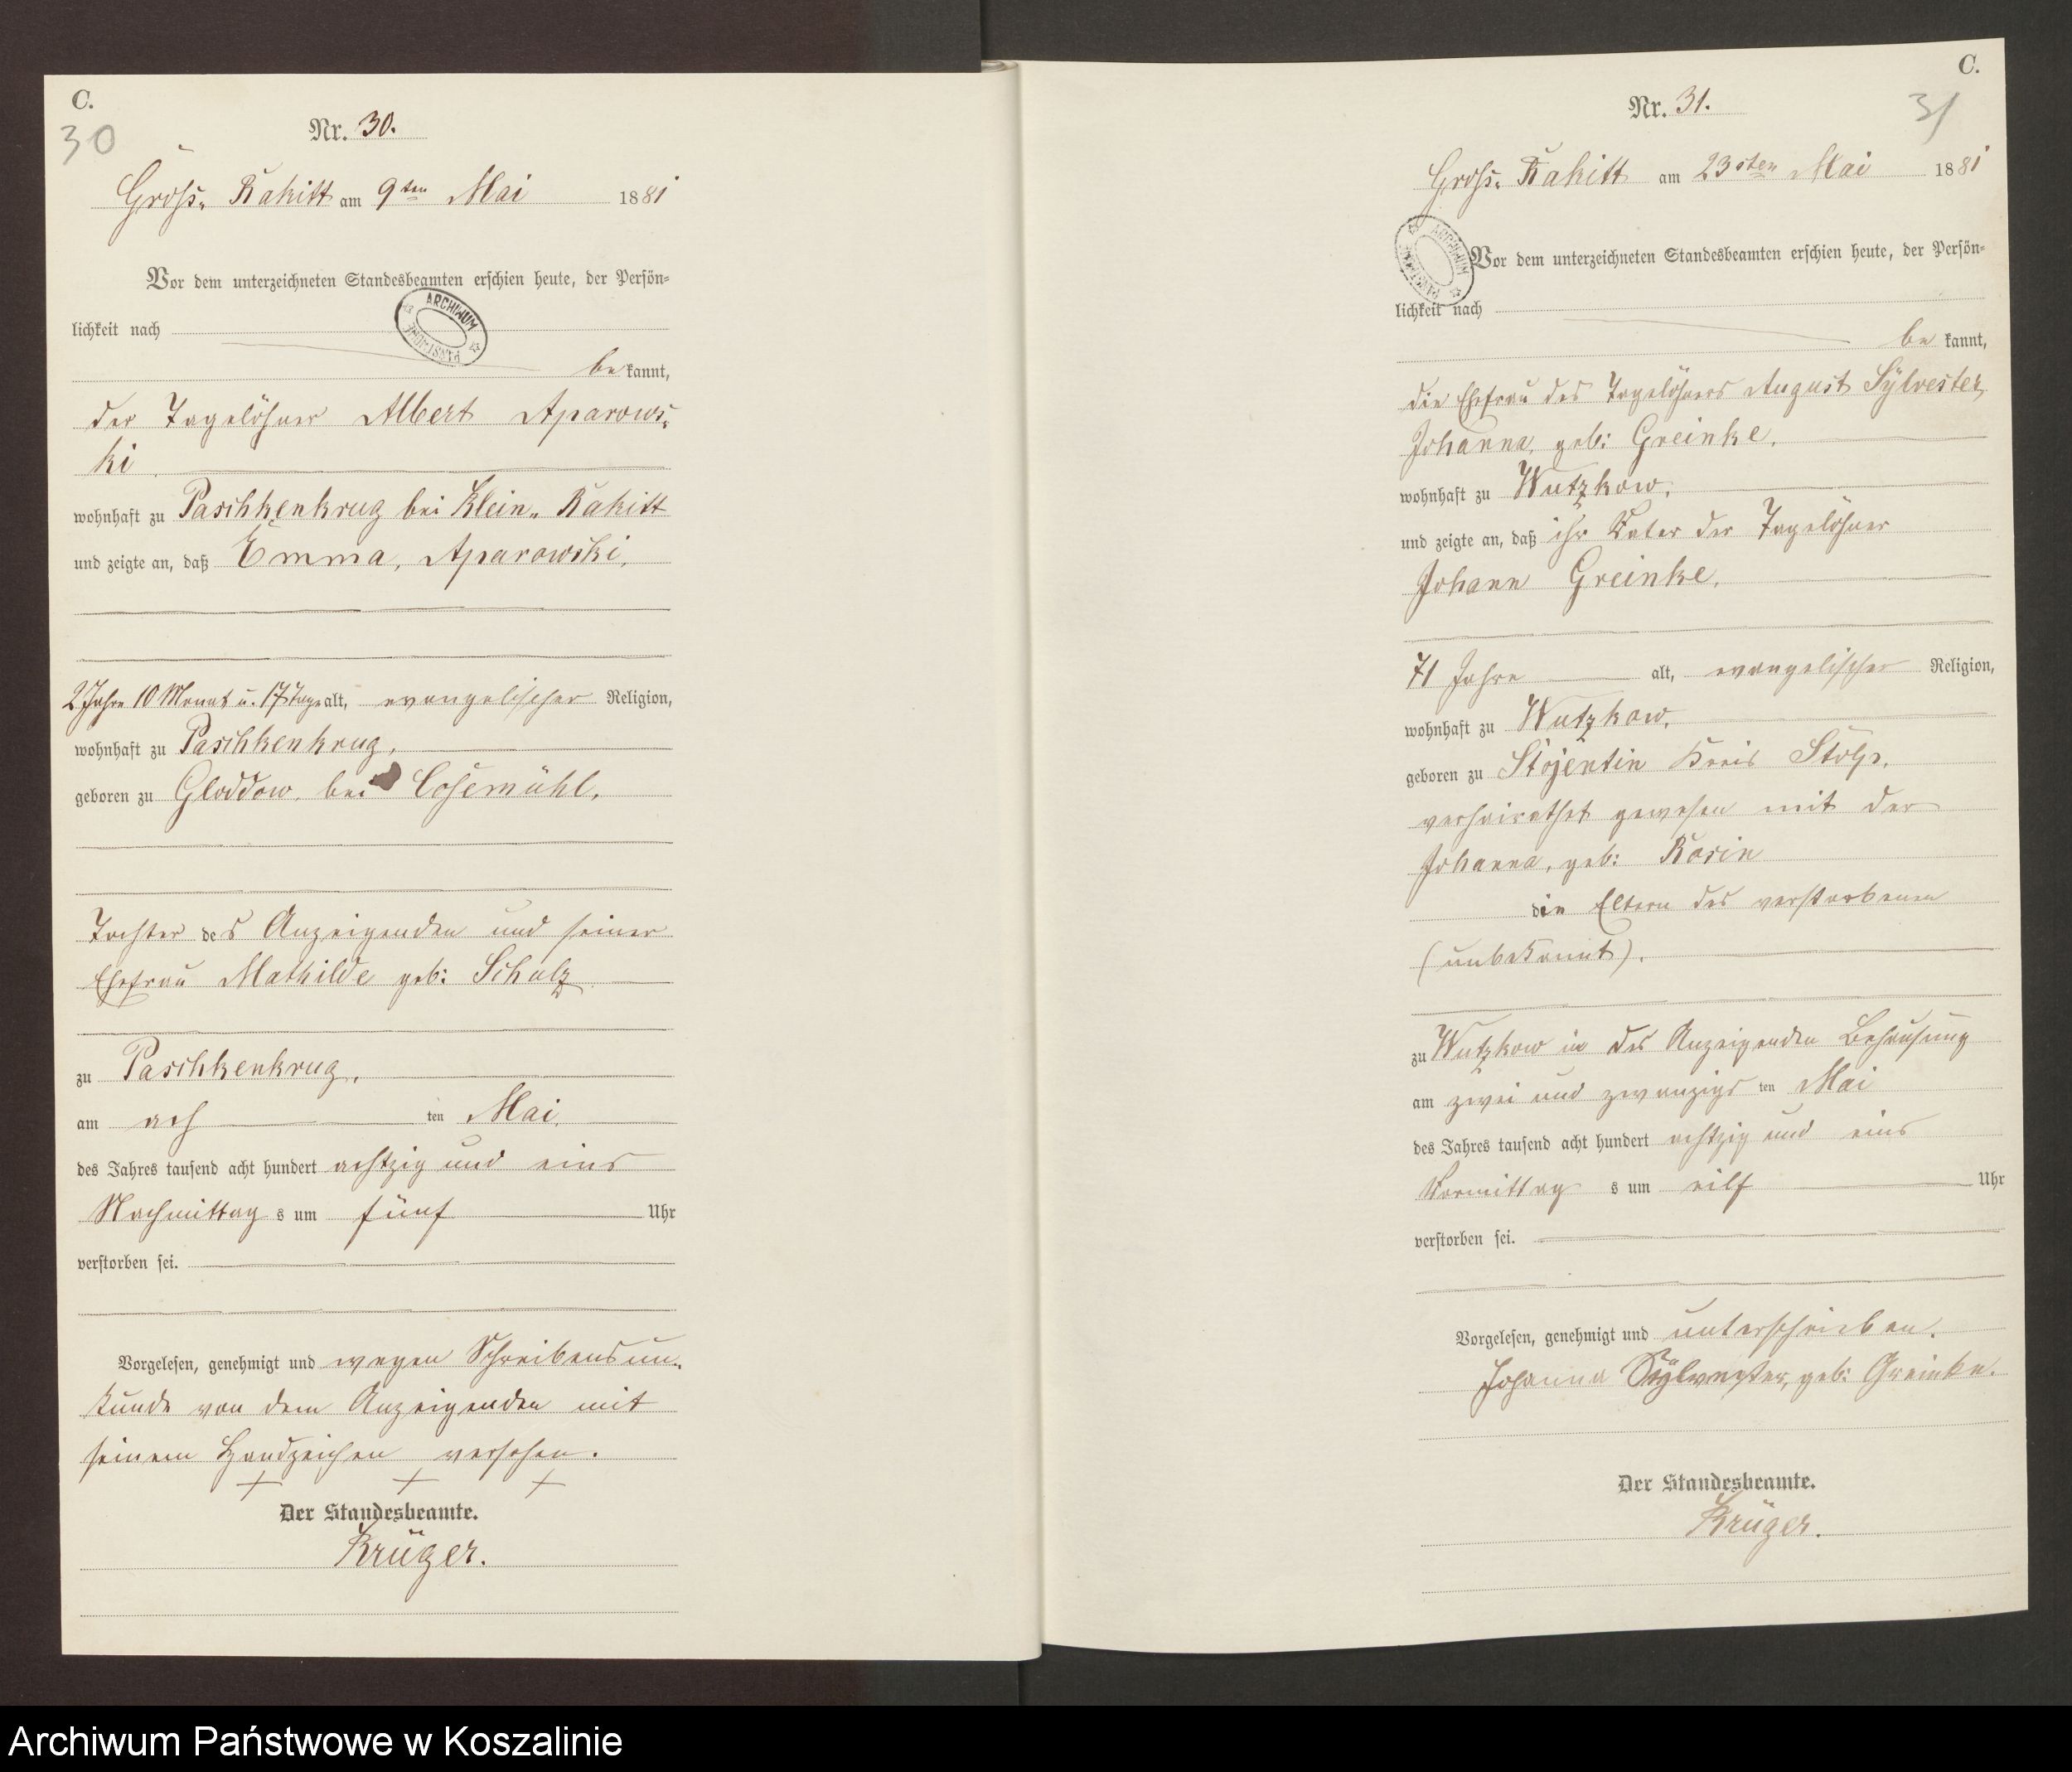 C.
30
Nr. 30.
Gross- Rakitt am 9ten Mai 1881
Vor dem unterzeichneten Standesbeamten erschien heute, der Persön-
lichkeit nach
ARCHIWUM PAŃSTWOWE
bekannt,
der Tagelöhner Albert Aparows-
ki.
wohnhaft zu Paschkenkrug bei Klein- Rakitt
und zeigte an, daß Emma, Aparowski,
2 Jahre 10 Monat u. 17 Tage alt, evangelischer Religion,
wohnhaft zu Paschkenkrug,
geboren zu Gloddow, bei Cosemühl,
Tochter des Anzeigenden und seiner
Ehefrau Mathilde geb: Schulz
zu Paschkenkrug,
am ach ten Mai,
des Jahres tausend acht hundert achtzig und eins
Nachmittag s um fünf Uhr
verstorben sei.
Vorgelesen, genehmigt und wegen Schreibensun-
kunde von dem Anzeigenden mit
seinem Handzeichen versehen.
+ + +
Der Standesbeamte.
Krüger.
C.
31
Nr. 31.
Gross- Rakitt am 23sten Mai 1881
Vor dem unterzeichneten Standesbeamten erschien heute, der Persön-
lichkeit nach
ARCHIWUM PAŃSTWOWE
bekannt,
die Ehefrau des Tagelöhners August Sylvester,
Johanna, geb: Greinke,
wohnhaft zu Wutzkow,
und zeigte an, daß ihr Vater der Tagelöhner
Johann Greinke,
71 Jahre alt, evangelischer Religion,
wohnhaft zu Wutzkow,
geboren zu Stojentin Kreis Stolp,
verheirathet gewesen mit der
Johanna, geb: Rosin
die Eltern des verstorbenen
(unbekannt).
zu Wutzkow in des Anzeigenden Behausung
am zwei und zwanzigs ten Mai
des Jahres tausend acht hundert achtzig und eins
Vormittag s um eilf Uhr
verstorben sei.
Vorgelesen, genehmigt und unterschrieben.
Johanna Sylvester, geb: Greinke.
Der Standesbeamte.
Krüger.
Archiwum Państwowe w Koszalinie